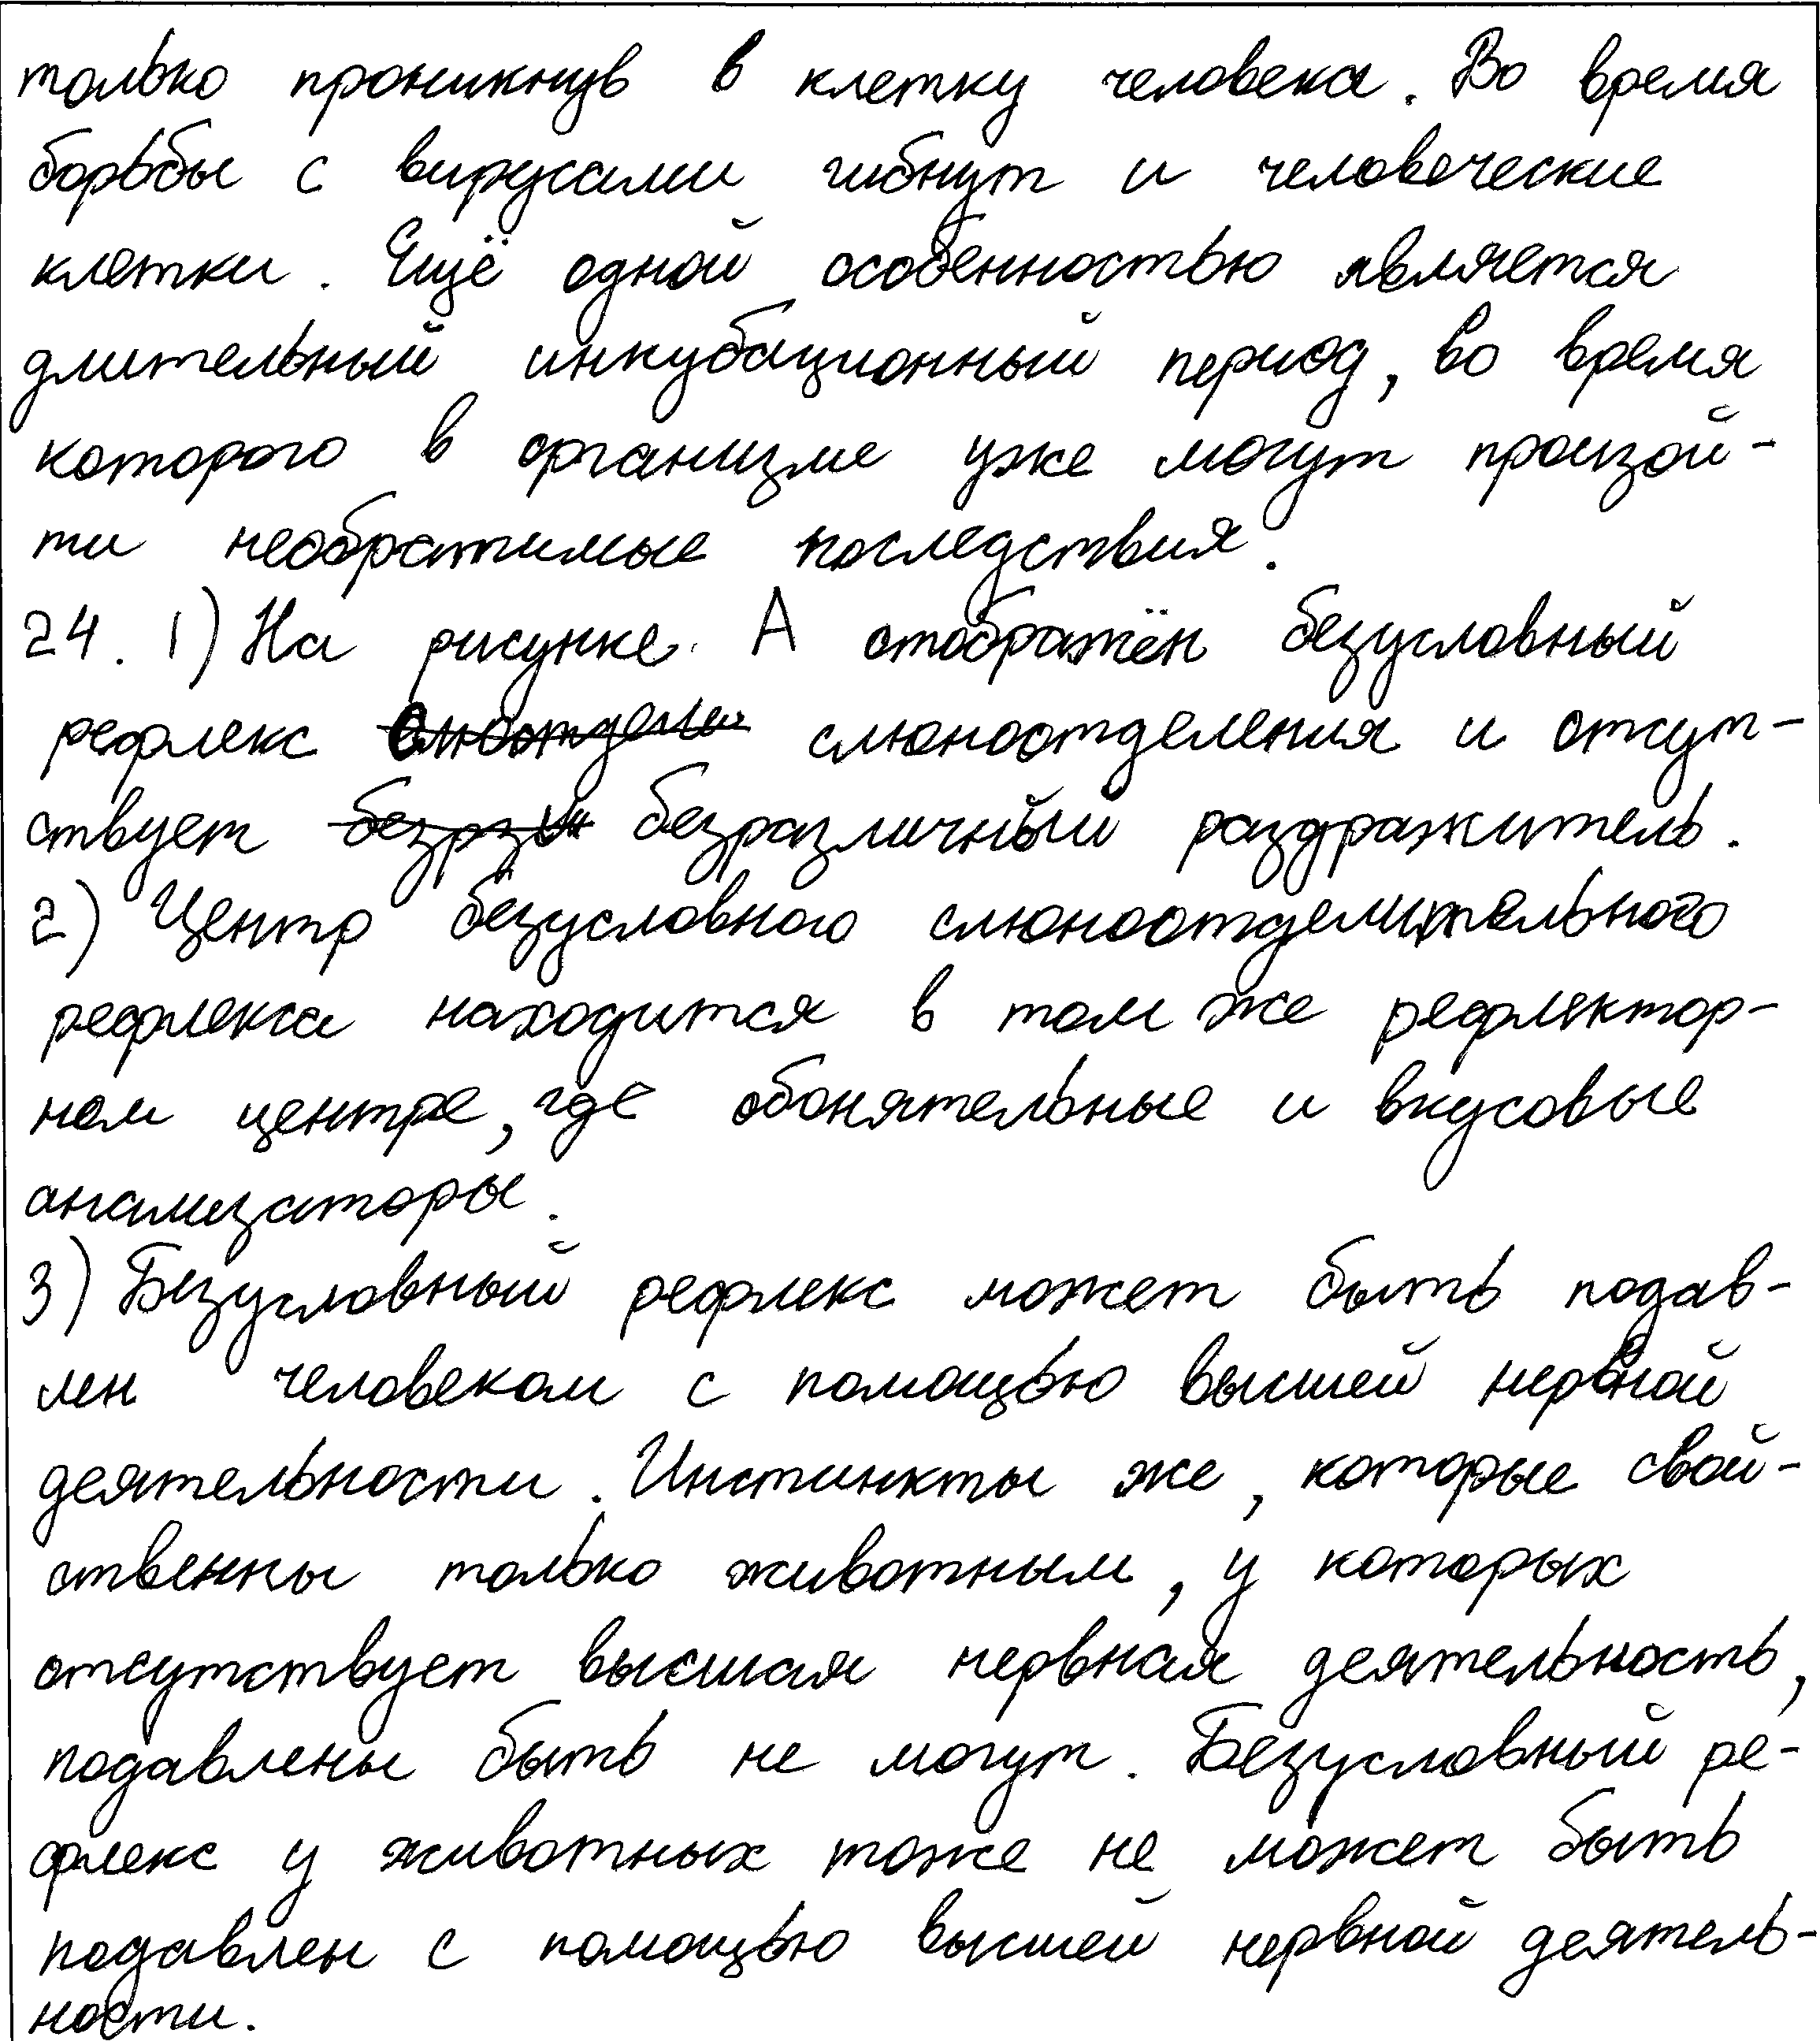 только проникнув в клетку человека. Во время
борьбы с вирусами гибнут и человеческие
клетки. Ещё одной особенностью является
длительный инкубационный период, во время
которого в организме уже могут произой-
ти необратимые последствия.
24. 1) На рисунке А отображён безусловный
рефлекс слюноотделения и отсут-
ствует безразличный раздражитель.
2) Центр безусловного слюноотделительного
рефлекса находится в том же рефлектор-
ном центре, где обонятельные и вкусовые
анализаторы.
3) Безусловный рефлекс может быть подав-
лен человеком с помощью высшей нервной
деятельности. Инстинкты же, которые свой-
ственны только животным, у которых
отсутствует высшая нервная деятельность,
подавлены быть не могут. Безусловный ре-
флекс у животных тоже не может быть
подавлен с помощью высшей нервной деятель-
ности.